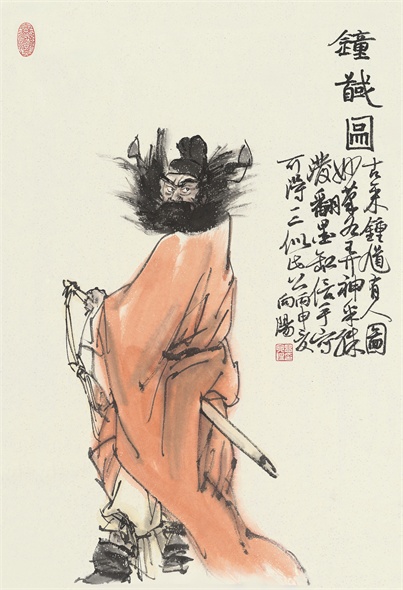 鐘馗圖
古来鍾馗有人圖
妙筆各异神采殊
潑翻墨缸信手寫
可得二似此公丙申夏
向陽